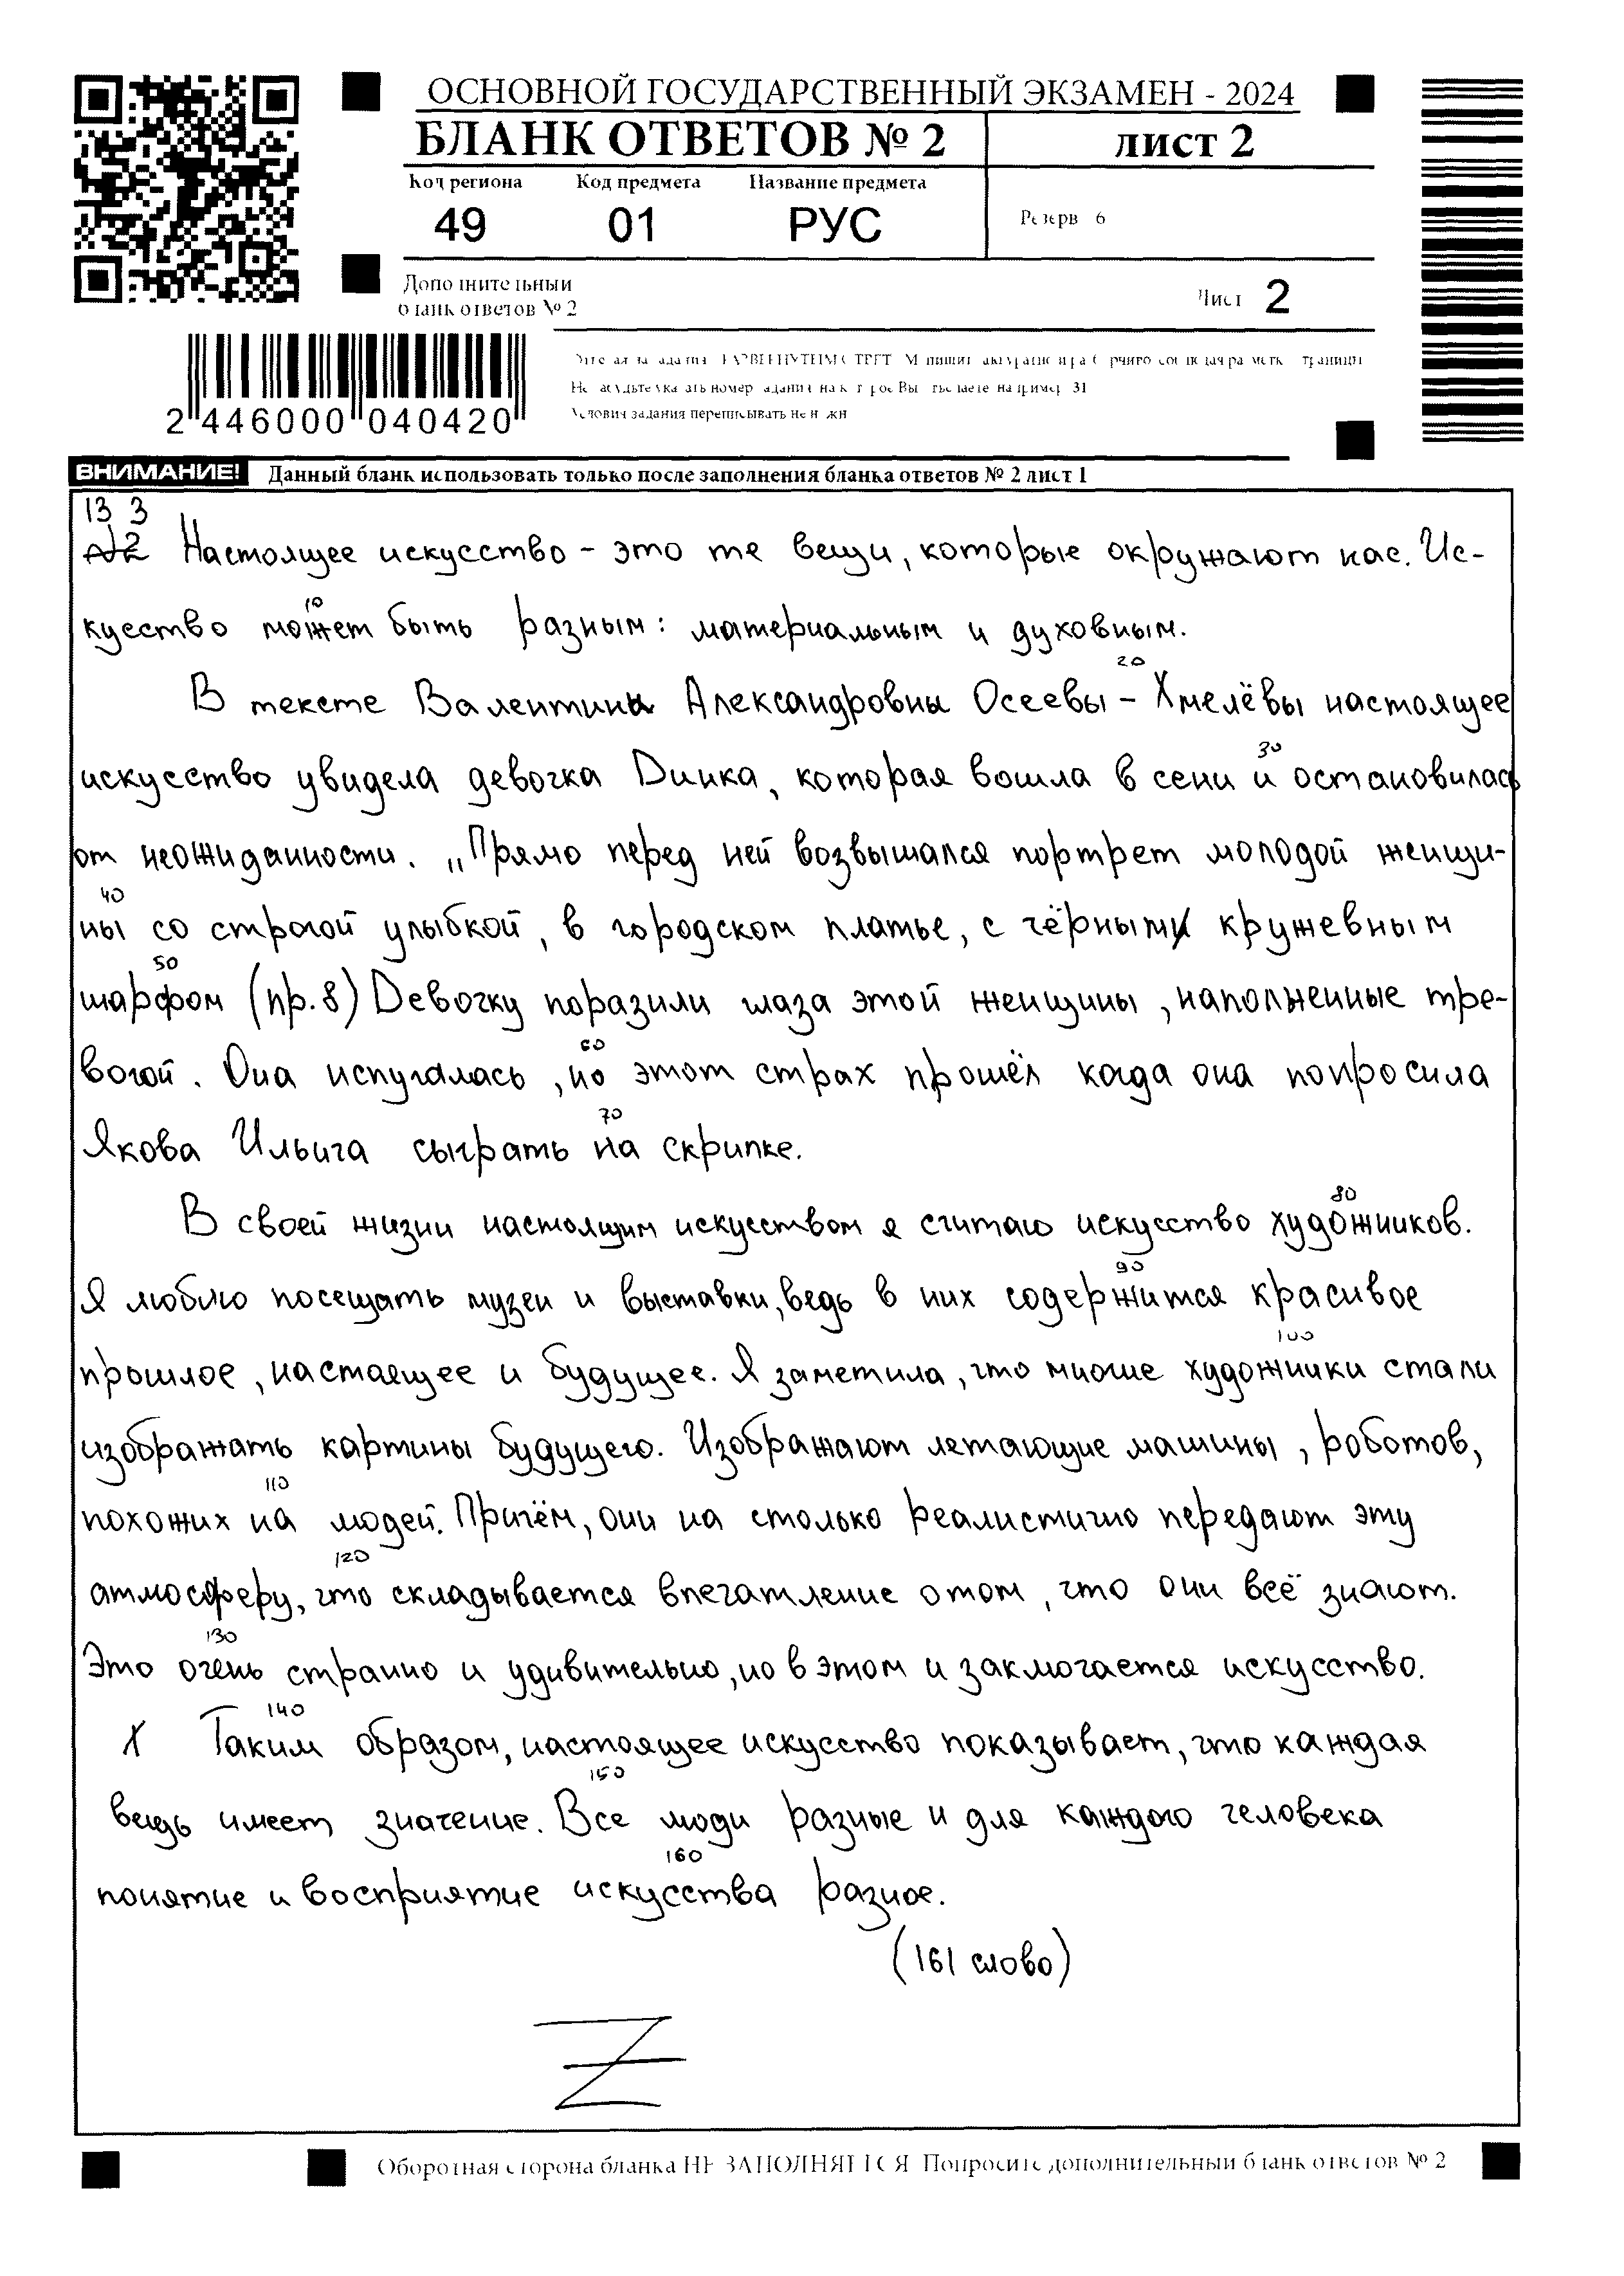 ОСНОВНОЙ ГОСУДАРСТВЕННЫЙ ЭКЗАМЕН - 2024
БЛАНК ОТВЕТОВ № 2
лист 2
Код региона Код предмета Название предмета
49 01 РУС
Резерв 6
Дополнительный
бланк ответов № 2
Лист 2
2 446000 040420
Условия задания переписывать не нужно
ВНИМАНИЕ! Данный бланк использовать только после заполнения бланка ответов № 2 лист 1
13 3
Настоящее искусство – это те вещи, которые окружают нас. Ис-
10
кусство может быть разным: материальным и духовным.
20
В тексте Валентины Александровны Осеевы – Хмелёвы настоящее
30
искусство увидела девочка Динка, которая вошла в сени и остановилась
от неожиданности. „Прямо перед ней возвышался портрет молодой женщи-
40
ны со строгой улыбкой, в городском платье, с чёрным кружевным
50
шарфом (пр. 8) Девочку поразили глаза этой женщины, наполненные тре-
60
вогой. Она испугалась, но этот страх прошёл когда она попросила
70
Якова Ильича сыграть на скрипке.
80
В своей жизни настоящим искусством я считаю искусство художников.
90
Я люблю посещать музеи и выставки, ведь в них содержится красивое
100
прошлое, настаящее и будущее. Я заметила, что многие художники стали
изображать картины будущего. Изображают летающие машины, роботов,
110
похожих на людей. Причём, они на столько реалистично передают эту
120
атмосферу, что складывается впечатление о том, что они всё знают.
130
Это очень странно и удивительно, но в этом и заключается искусство.
140
Таким образом, настоящее искусство показывает, что каждая
150
вещь имеет значение. Все люди разные и для каждого человека
160
понятие и восприятие искусства разное.
(161 слово)
Z
Оборотная сторона бланка НЕ ЗАПОЛНЯЕТСЯ. Попросите дополнительный бланк ответов № 2